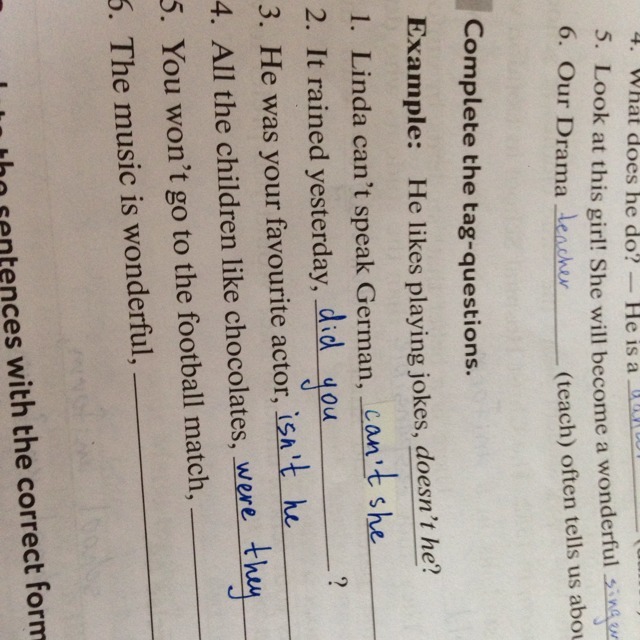 4. What does he do? – He is a
5. Look at this girl! She will become a wonderful singer
6. Our Drama teacher (teach) often tells us abou
Complete the tag-questions.
Example: He likes playing jokes, doesn't he?
1. Linda can't speak German, can't she
2. It rained yesterday, did you ?
3. He was your favourite actor, isn't he
4. All the children like chocolates, were they
5. You won't go to the football match,
6. The music is wonderful,
the sentences with the correct form